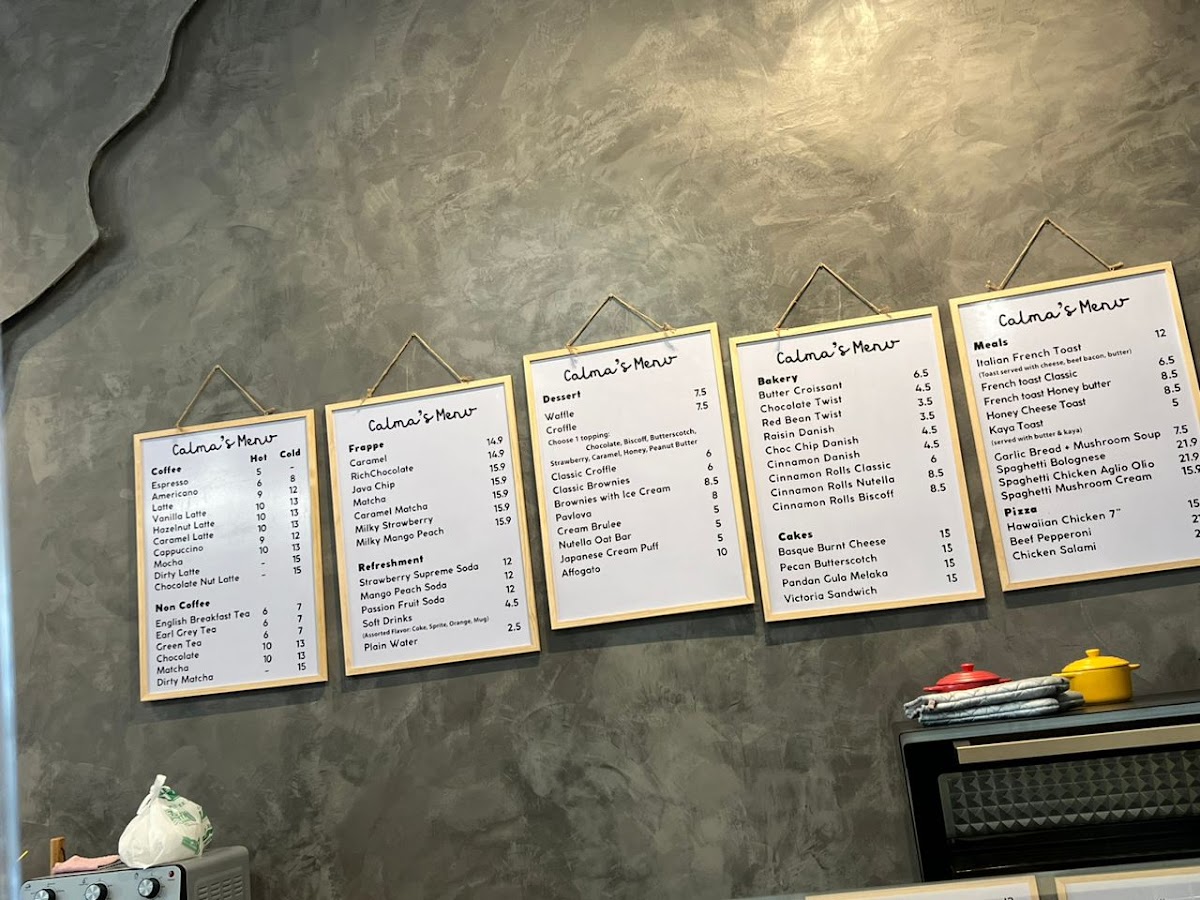 Calma's Menu
Coffee Hot Cold
Espresso 5 -
Americano 6 8
Latte 9 12
Vanilla Latte 10 13
Hazelnut Latte 10 13
Caramel Latte 10 13
Cappuccino 9 12
Mocha 10 13
Dirty Latte - 15
Chocolate Nut Latte - 15
Non Coffee
English Breakfast Tea 6 7
Earl Grey Tea 6 7
Green Tea 6 7
Chocolate 10 13
Matcha 10 13
Dirty Matcha - 15
Calma's Menu
Frappe
Caramel 14.9
RichChocolate 14.9
Java Chip 15.9
Matcha 15.9
Caramel Matcha 15.9
Milky Strawberry 15.9
Milky Mango Peach 15.9
Refreshment
Strawberry Supreme Soda 12
Mango Peach Soda 12
Passion Fruit Soda 12
Soft Drinks 4.5
(Assorted Flavor: Coke, Sprite, Orange, Mug)
Plain Water 2.5
Calma's Menu
Dessert
Waffle 7.5
Croffle 7.5
Choose 1 topping:
Chocolate, Biscoff, Butterscotch,
Strawberry, Caramel, Honey, Peanut Butter
Classic Croffle 6
Classic Brownies 6
Brownies with Ice Cream 8.5
Pavlova 8
Cream Brulee 5
Nutella Oat Bar 5
Japanese Cream Puff 5
Affogato 10
Calma's Menu
Bakery
Butter Croissant 6.5
Chocolate Twist 4.5
Red Bean Twist 3.5
Raisin Danish 3.5
Choc Chip Danish 4.5
Cinnamon Danish 4.5
Cinnamon Rolls Classic 6
Cinnamon Rolls Nutella 8.5
Cinnamon Rolls Biscoff 8.5
Cakes
Basque Burnt Cheese 15
Pecan Butterscotch 15
Pandan Gula Melaka 15
Victoria Sandwich 15
Calma's Menu
Meals
Italian French Toast 12
(Toast served with cheese, beef bacon, butter)
French toast Classic 6.5
French toast Honey butter 8.5
Honey Cheese Toast 8.5
Kaya Toast 5
(served with butter & kaya)
Garlic Bread + Mushroom Soup 7.5
Spaghetti Bolognese 21.9
Spaghetti Chicken Aglio Olio 21.9
Spaghetti Mushroom Cream 15.9
Pizza
Hawaiian Chicken 7"
Beef Pepperoni
Chicken Salami